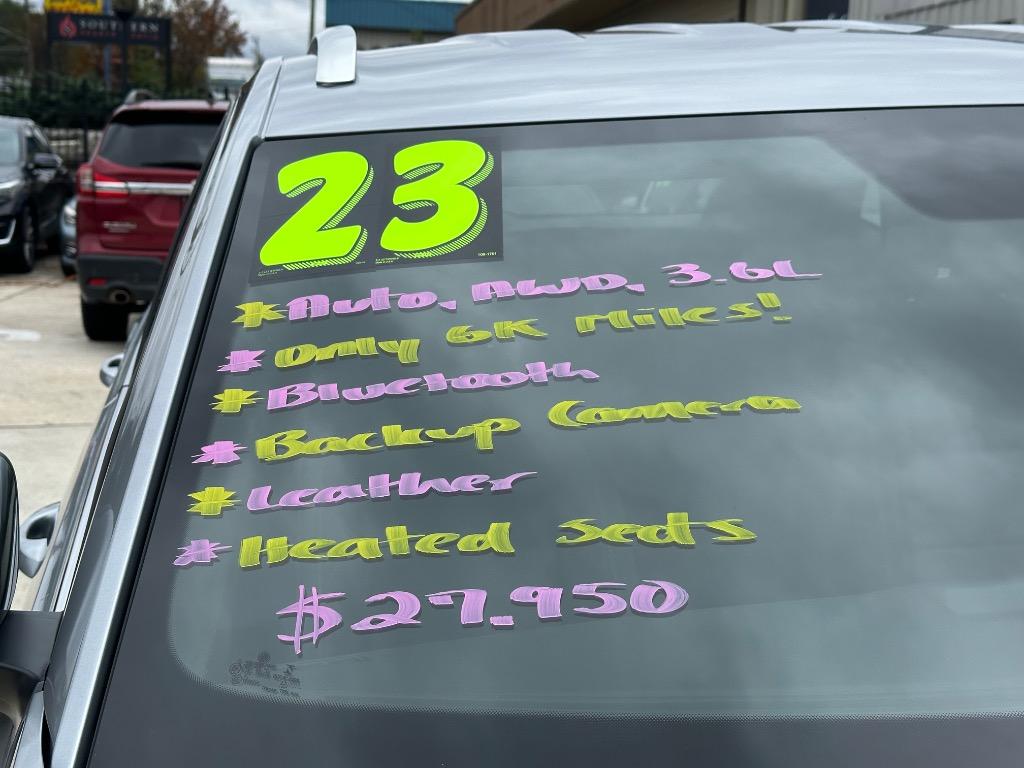 SOUTHERN
23
* Auto, AWD, 3.6L
* Only 6K Miles!
* Bluetooth
* Backup Camera
* Leather
* Heated Seats
$27,950